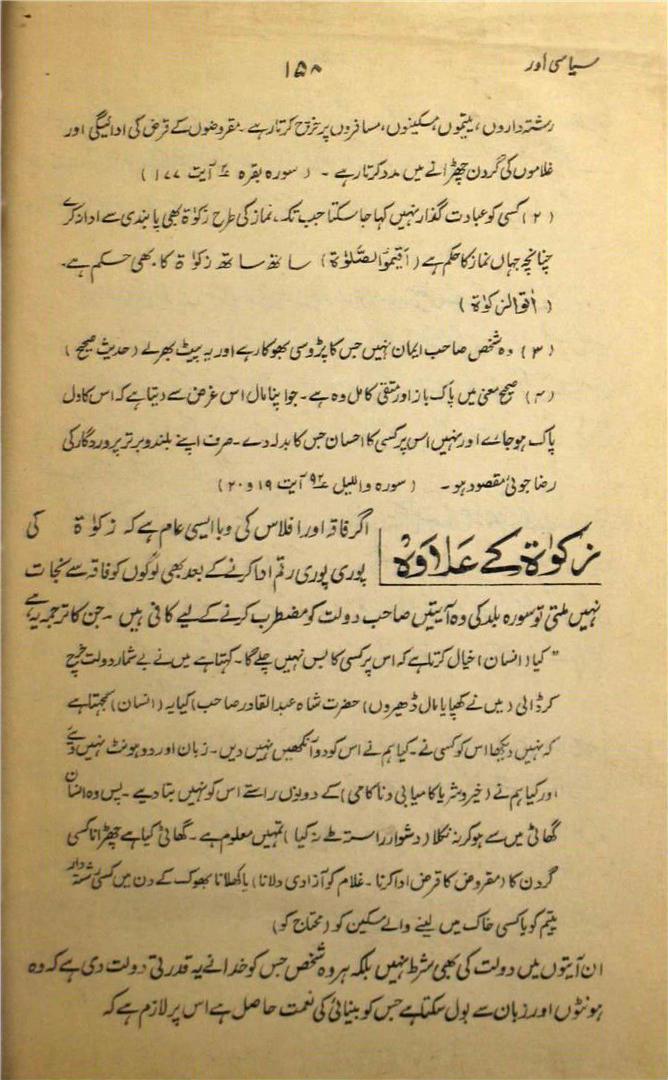 سیاسی اور
۱۵۸
رشتہ داروں، یتیموں، مسکینوں، مسافروں پر خرچ کرتا رہے۔ مقروضوں کے قرض کی ادائیگی اور
غلاموں کی گردن چھڑانے میں مدد کرتا رہے۔ (سورہ بقرہ ۲ آیت ۱۷۷)
(۲) کسی کو عبادت گذار نہیں کہا جا سکتا جب تک، نماز کی طرح زکوٰۃ بھی پابندی سے ادا نہ کرے
چنانچہ جہاں نماز کا حکم ہے (اَقِیْمُوا الصَّلٰوۃَ) ساتھ ساتھ زکوٰۃ کا بھی حکم ہے۔
(اٰتوا الزکوٰۃ)
(۳) وہ شخص صاحب ایمان نہیں جس کا پڑوسی بھوکا رہے اور یہ پیٹ بھرلے (حدیث صحیح)
(۴) صحیح معنی میں پاک باز اور متقی کامل وہ ہے۔ جو اپنا مال اس غرض سے دیتا ہے کہ اس کا دل
پاک ہو جائے اور نہیں اس پر کسی کا احسان جس کا بدلہ دے۔ صرف اپنے بلند و برتر پروردگار کی
رضا جوئی مقصود ہو۔ (سورہ واللیل ۹۲ آیت ۱۹ و ۲۰)
زکوٰۃ کے علاوہ
اگر فاقہ اور افلاس کی وبا ایسی عام ہے کہ زکوٰۃ کی
پوری پوری رقم ادا کرنے کے بعد بھی لوگوں کو فاقہ سے نجات
نہیں ملتی تو سورہ بلد کی وہ آیتیں صاحب دولت کو مضطرب کرنے کے لیے کافی ہیں۔ جن کا ترجمہ یہ ہے
"کیا (انسان) خیال کرتا ہے کہ اس پر کسی کا بس نہیں چلے گا۔ کہتا ہے میں نے بے شمار دولت خرچ
کر ڈالی (میں نے کھپایا مال ڈھیروں) حضرت شاہ عبدالقادر صاحب) کیا یہ (انسان) سمجھتا ہے
کہ نہیں دیکھا اس کو کسی نے۔ کیا ہم نے اس کو دو آنکھیں نہیں دیں۔ زبان اور دو ہونٹ نہیں دئے
اور کیا ہم نے (خیر و شر یا کامیابی و ناکامی) کے دونوں راستے اس کو نہیں بتا دیے۔ پس وہ انسان
گھاٹی میں سے ہو کر نہ نکلا (دشوار راستہ طے نہ کیا) تمہیں معلوم ہے۔ گھاٹی کیا ہے چھڑانا کسی
گردن کا (مقروض کا قرض ادا کرنا۔ غلام کو آزادی دلانا) یا کھلانا بھوک کے دن میں کسی رشتہ دار
یتیم کو یا کسی خاک میں لیٹے والے مسکین کو (محتاج کو)
ان آیتوں میں دولت کی بھی شرط نہیں بلکہ ہر وہ شخص جس کو خدا نے یہ قدرتی دولت دی ہے کہ وہ
ہونٹوں اور زبان سے بول سکتا ہے جس کو بینائی کی نعمت حاصل ہے اس پر لازم ہے کہ